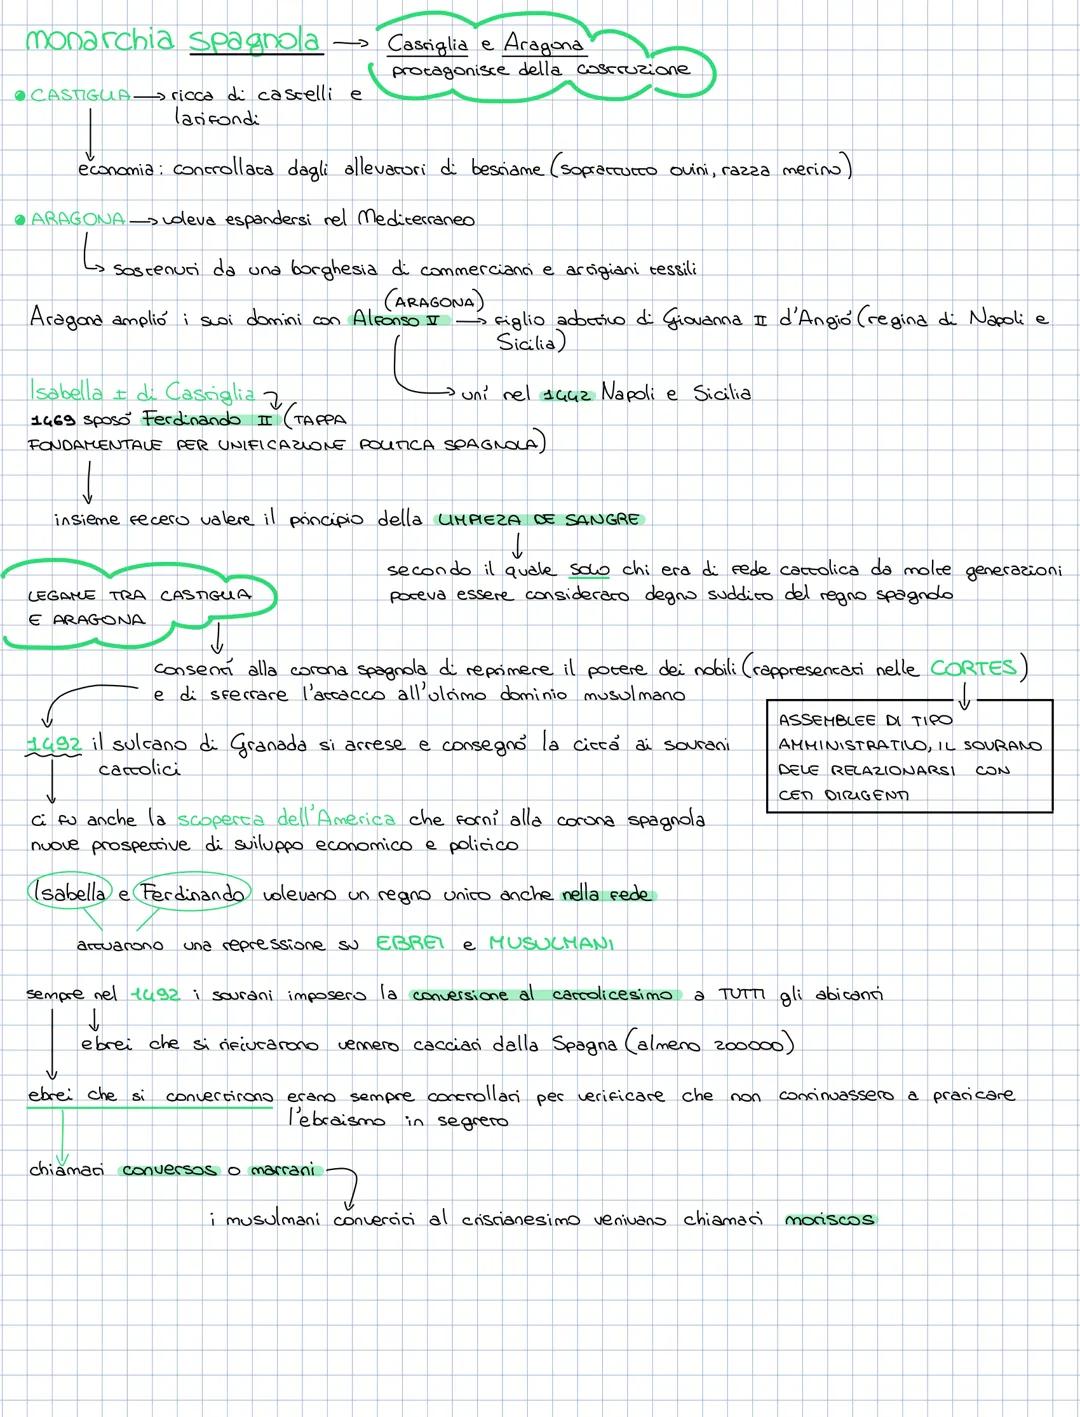 monarchia spagnola → Castiglia e Aragona
protagoniste della costruzione
• CASTIGLIA → ricca di castelli e
latifondi
economia: controllata dagli allevatori di bestiame (soprattutto ovini, razza merino)
• ARAGONA → voleva espandersi nel Mediterraneo
sostenuti da una borghesia di commercianti e artigiani tessili
(ARAGONA)
Aragona ampliò i suoi domini con Alfonso V → figlio adottivo di Giovanna II d'Angiò (regina di Napoli e
Sicilia)
unì nel 1442 Napoli e Sicilia
Isabella I di Castiglia
1469 sposò Ferdinando II (TAPPA
FONDAMENTALE PER UNIFICAZIONE POLITICA SPAGNOLA)
insieme fecero valere il principio della LIMPIEZA DE SANGRE
secondo il quale solo chi era di fede cattolica da molte generazioni
poteva essere considerato degno suddito del regno spagnolo
LEGAME TRA CASTIGLIA
E ARAGONA
consentì alla corona spagnola di reprimere il potere dei nobili (rappresentati nelle CORTES)
e di sferrare l'attacco all'ultimo dominio musulmano
ASSEMBLEE DI TIPO
AMMINISTRATIVO, IL SOVRANO
DEVE RELAZIONARSI CON
CETI DIRIGENTI
1492 il sultano di Granada si arrese e consegnò la città ai sovrani
cattolici
ci fu anche la scoperta dell'America che fornì alla corona spagnola
nuove prospettive di sviluppo economico e politico
Isabella e Ferdinando volevano un regno unito anche nella fede
attuarono una repressione su EBREI e MUSULMANI
sempre nel 1492 i sovrani imposero la conversione al cattolicesimo a TUTTI gli abitanti
ebrei che si rifiutarono vennero cacciati dalla Spagna (almeno 200000)
ebrei che si convertirono erano sempre controllati per verificare che non continuassero a praticare
l'ebraismo in segreto
chiamati conversos o marrani
i musulmani convertiti al cristianesimo venivano chiamati moriscos